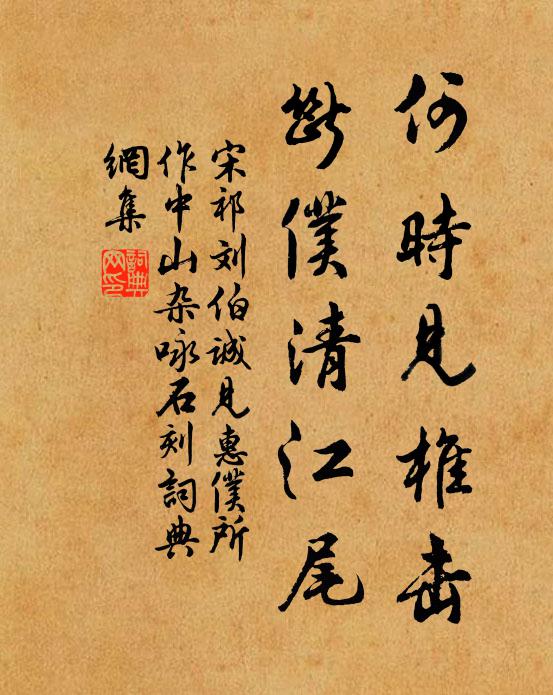 何時見椎击
断僕清江尾
宋祁刘伯誠見惠僕所
作中山杂咏石刻詞典
網集
詞典
网印